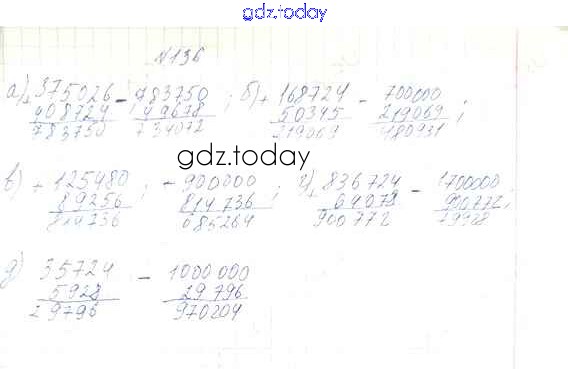 gdz.today
№136
а) + 375026 - 783750 ; б) + 168724 - 700000
408724 49678 50345 219069 ;
783750 734072 219069 480931
gdz.today
в) + 125480 ; - 900000 ; г) + 836724 - 1700000
89256 814736 64072 900772 ;
814736 685264 900772
д) 35724 - 1000000
5928 29796
29796 970204